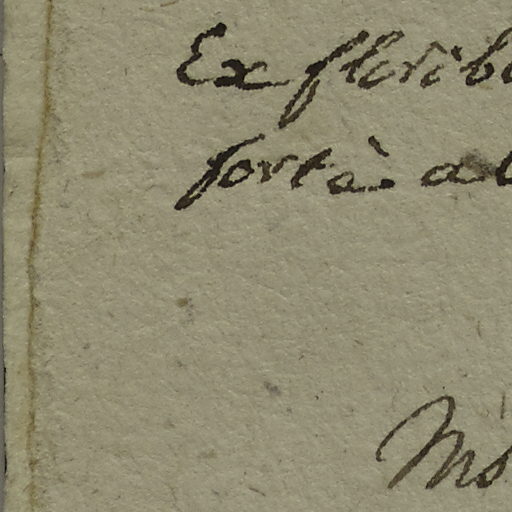 Ex florib
fortè al
Ms